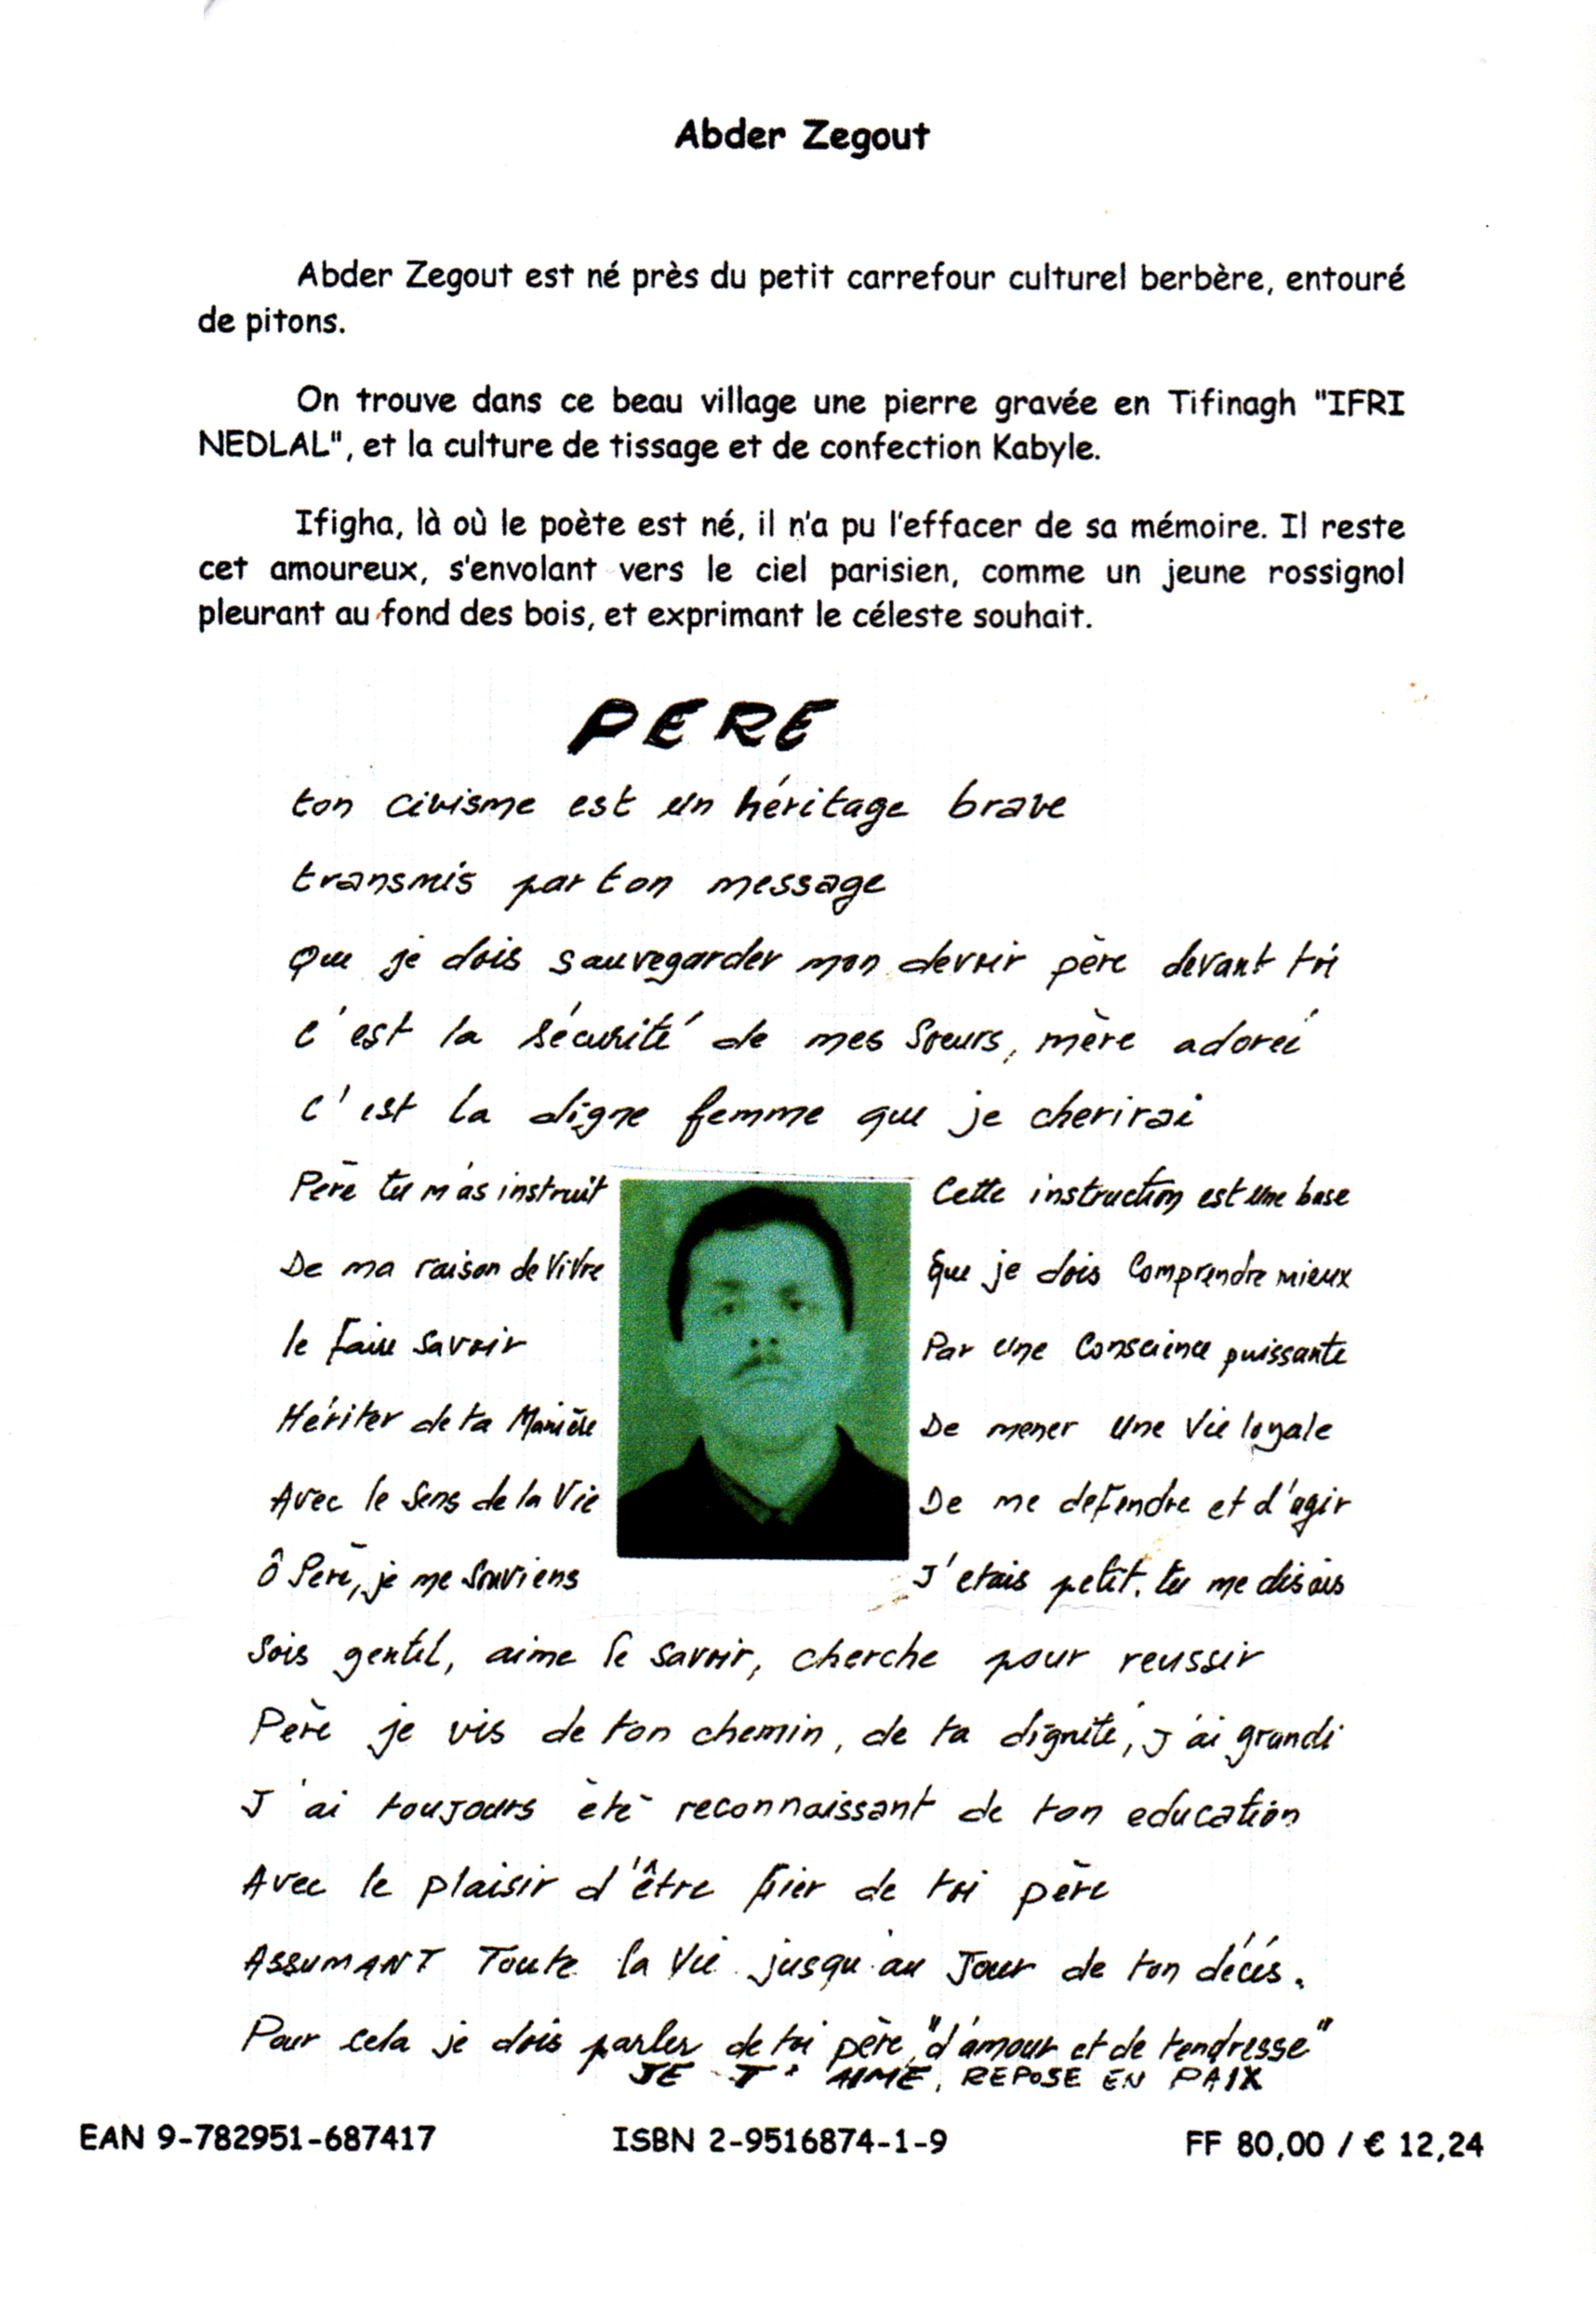 Abder Zegout
Abder Zegout est né près du petit carrefour culturel berbère, entouré
de pitons.
On trouve dans ce beau village une pierre gravée en Tifinagh "IFRI
NEDLAL", et la culture de tissage et de confection Kabyle.
Ifigha, là où le poète est né, il n'a pu l'effacer de sa mémoire. Il reste
cet amoureux, s'envolant vers le ciel parisien, comme un jeune rossignol
pleurant au fond des bois, et exprimant le céleste souhait.
PERE
ton civisme est un héritage brave
transmis par ton message
que je dois sauvegarder mon devoir père devant toi
c'est la sécurité de mes Soeurs, mère adoreé
c'est la digne femme que je cherirai
Père tu m'as instruit
De ma raison de Vivre
le faire savoir
Hériter de ta Manière
Avec le Sens de la Vie
Ô Père, je me souviens
Cette instruction est une base
Que je dois Comprendre mieux
Par une Conscience puissante
De mener une Vie loyale
De me defendre et d'agir
J'etais petit, tu me disais
Sois gentil, aime le savoir, cherche pour reussir
Père je vis de ton chemin, de ta dignité, j'ai grandi
J'ai toujours èté reconnaissant de ton education
Avec le plaisir d'être fier de toi père
ASSUMANT Toute la Vie jusqu'au Jour de ton décés.
Pour cela je dois parler de toi père, "d'amour et de tendresse"
JE T'AIME, REPOSE EN PAIX
EAN 9-782951-687417 ISBN 2-9516874-1-9 FF 80,00 / € 12,24